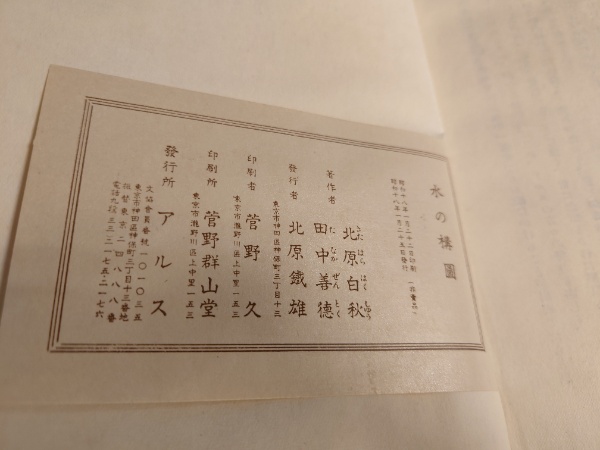 水の構圖
昭和十八年一月二十二日印刷
昭和十八年一月二十五日發行
著作者
北原白秋
きたはらはくしう
田中善德
たなかぜんとく
發行者
北原鐵雄
東京市神田區神保町三丁目十三
印刷者
菅野久
東京市瀧野川區上中里一五三
印刷所
菅野群山堂
東京市瀧野川區上中里一五三
發行所
アルス
文協會員番號一〇一〇三五
東京市神田區神保町三丁目十三番地
振替東京二四八八八番
電話九段三三・二一七五・二一七六